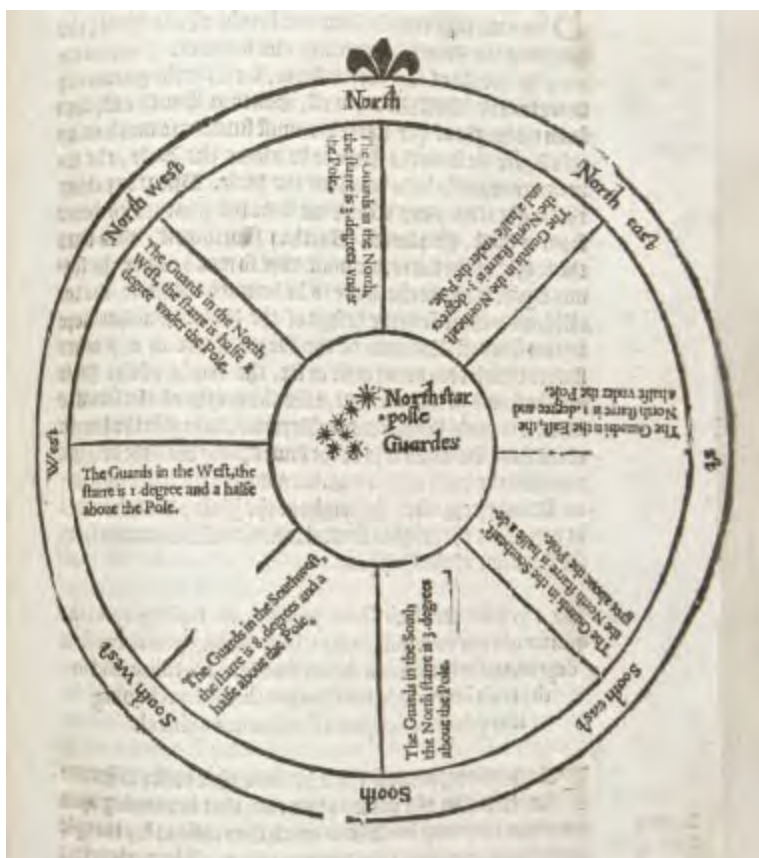 North
North east
Est
South east
South
South West
West
North West
The Guards in the North
the starre is 3. degrees vnder
the Pole.
The Guards in the Northeast
the North starre is 3. degrees
and a halfe vnder the Pole.
The Guards in the East, the
North starre is 1. degree and
a halfe vnder the Pole.
The Guards in the Southeast
the North starre is halfe a de-
gree aboue the Pole.
The Guards in the South
the North starre is 3. degrees
aboue the Pole.
The Guards in the Southwest,
the starre is 8. degrees and a
halfe about the Pole.
The Guards in the West, the
starre is 1 degree and a halfe
aboue the Pole.
The Guards in the North
West, the starre is halfe a
degree vnder the Pole.
Northstar
pole
Guardes